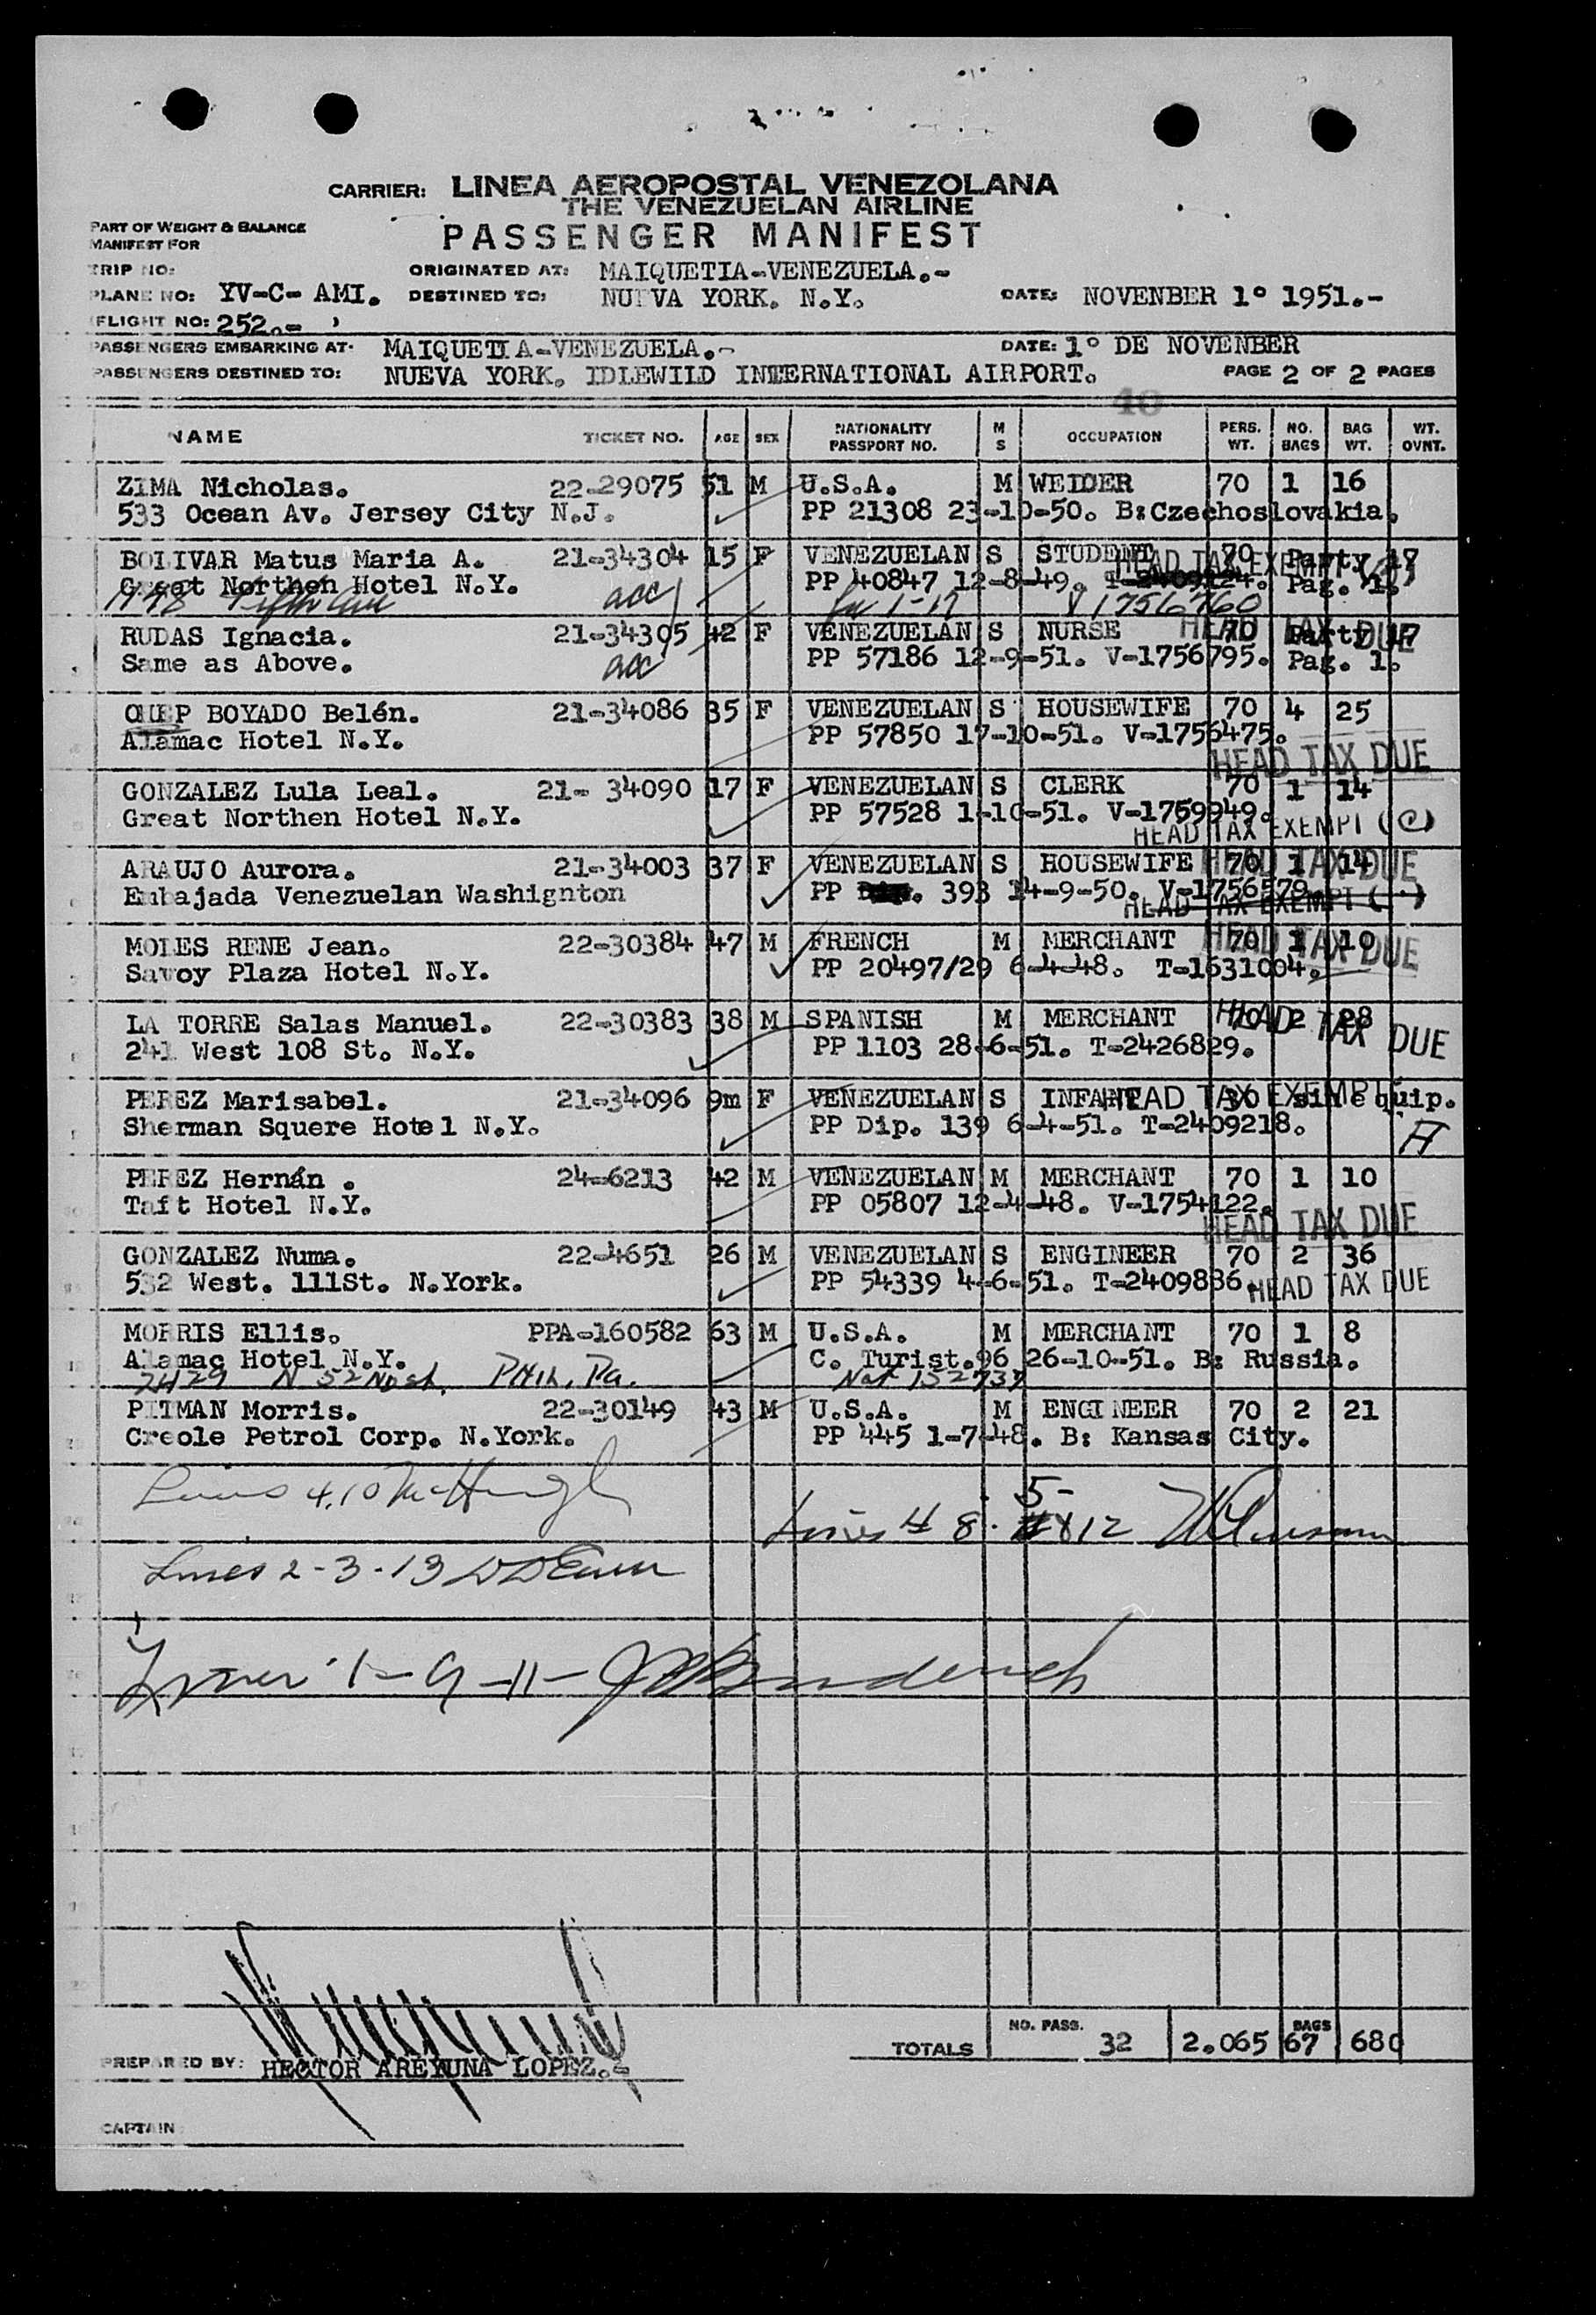 CARRIER: LINEA AEROPOSTAL VENEZOLANA
THE VENEZUELAN AIRLINE
PART OF WEIGHT & BALANCE
MANIFEST FOR
PASSENGER MANIFEST
TRIP NO:
ORIGINATED AT: MAIQUETIA-VENEZUELA.-
PLANE NO: YV-C- AMI. DESTINED TO: NUEVA YORK. N.Y. DATE: NOVENBER 1º 1951.-
(FLIGHT NO: 252.- )
PASSENGERS EMBARKING AT: MAIQUETIA-VENEZUELA.- DATE: 1º DE NOVENBER
PASSENGERS DESTINED TO: NUEVA YORK. IDLEWILD INTERNATIONAL AIRPORT. PAGE 2 OF 2 PAGES
40
NAME TICKET NO. AGE SEX NATIONALITY PASSPORT NO. M S OCCUPATION PERS. WT. NO. BAGS BAG WT. WT. OVNT.
ZIMA Nicholas. 22-29075 51 M U.S.A. M WEIDER 70 1 16
533 Ocean Av. Jersey City N.J. PP 21308 23-10-50. B:Czechoslovakia.
BOLIVAR Matus Maria A. 21-34304 15 F VENEZUELAN S STUDENT 70 Party 17
HEAD TAX EXEMPT
Great Northen Hotel N.Y. PP 40847 12-8-49. T-2409124. Pag. 1.
Fifth Ave acc V 1756760
RUDAS Ignacia. 21-34305 42 F VENEZUELAN S NURSE 70 Party 17
HEAD TAX DUE
Same as Above. acc PP 57186 12-9-51. V-1756795. Pag. 1.
CHEP BOYADO Belén. 21-34086 35 F VENEZUELAN S HOUSEWIFE 70 4 25
Alamac Hotel N.Y. PP 57850 17-10-51. V-1756475.
HEAD TAX DUE
GONZALEZ Lula Leal. 21- 34090 17 F VENEZUELAN S CLERK 70 1 14
Great Northen Hotel N.Y. PP 57528 1-10-51. V-1759949.
HEAD TAX EXEMPT (C)
ARAUJO Aurora. 21-34003 37 F VENEZUELAN S HOUSEWIFE 70 1 14
HEAD TAX DUE
Embajada Venezuelan Washignton PP Dip. 393 14-9-50. V-1756579.
HEAD TAX EXEMPT ( )
MOLES RENE Jean. 22-30384 47 M FRENCH M MERCHANT 70 1 10
HEAD TAX DUE
Savoy Plaza Hotel N.Y. PP 20497/29 6-4-48. T-1631004.
LA TORRE Salas Manuel. 22-30383 38 M SPANISH M MERCHANT 70 2 28
HEAD TAX DUE
241 West 108 St. N.Y. PP 1103 28-6-51. T-2426829.
PEREZ Marisabel. 21-34096 9m F VENEZUELAN S INFANT 30 sin equip.
HEAD TAX EXEMPT
Sherman Squere Hotel N.Y. PP Dip. 139 6-4-51. T-2409218.
PEREZ Hernán . 24-6213 42 M VENEZUELAN M MERCHANT 70 1 10
Taft Hotel N.Y. PP 05807 12-4-48. V-1754122.
HEAD TAX DUE
GONZALEZ Numa. 22-4651 26 M VENEZUELAN S ENGINEER 70 2 36
532 West. 111St. N.York. PP 54339 4-6-51. T-2409836.
HEAD TAX DUE
MORRIS Ellis. PPA-160582 63 M U.S.A. M MERCHANT 70 1 8
Alamac Hotel N.Y. C. Turist.96 26-10-51. B: Russia.
Phila, Pa.
PITMAN Morris. 22-30149 43 M U.S.A. M ENGINEER 70 2 21
Creole Petrol Corp. N.York. PP 445 1-7-48. B: Kansas City.
Lines 4,10 McHugh
5-
Lines # 8. 12
Lines 2-3-13
Lines 1-9-11-
TOTALS NO. PASS. 32 2.065 BAGS 67 680
PREPARED BY: HECTOR AREYUNA LOPEZ.-
CAPTAIN